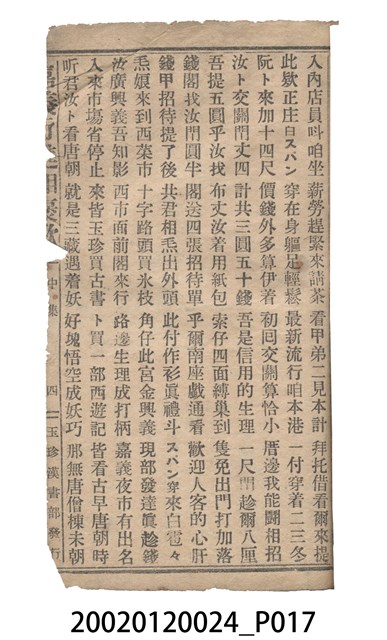 入內店員呌咱坐 薪勞趕緊來請茶 看甲弟二見本計 拜托借看爾來提
此欵正庄白スパン 穿在身軀足輕鬆 最新流行咱本港 一付穿着二三冬
阮卜來加十四尺 價錢外多算伊着 初回交關算恰小 厝邊我能鬪相招
汝卜交關門丈四 計共三圓五十錢 吾是信用的生理 一尺門趁爾八厘
吾提五圓乎汝找 布丈汝着用紙包 索仔四面縛集到 隻免出門打加落
錢閣找汝門圓半 閣送四張招待單 乎爾南座戲通看 歡迎人客的心肝
錢甲招待提了後 共君相𤆬出外頭 此付作衫眞禮斗 スパン穿來白雹々
𤆬娘來到西菜市 十字路頭買氷枝 角仔此宮金興義 現部發達眞趁錢
汝廣興義吾知影 西市面前閣來行 路邊生理成打柄 嘉義夜市有出名
入來市塲省停止 來皆玉珍買古書 卜買一部西遊記 皆看古早唐朝時
听君汝卜看唐朝 就是三藏遇着妖 好塊悟空成妖巧 那無唐僧棟未朝
中集 四 玉珍漢書部發行
20020120024_P017